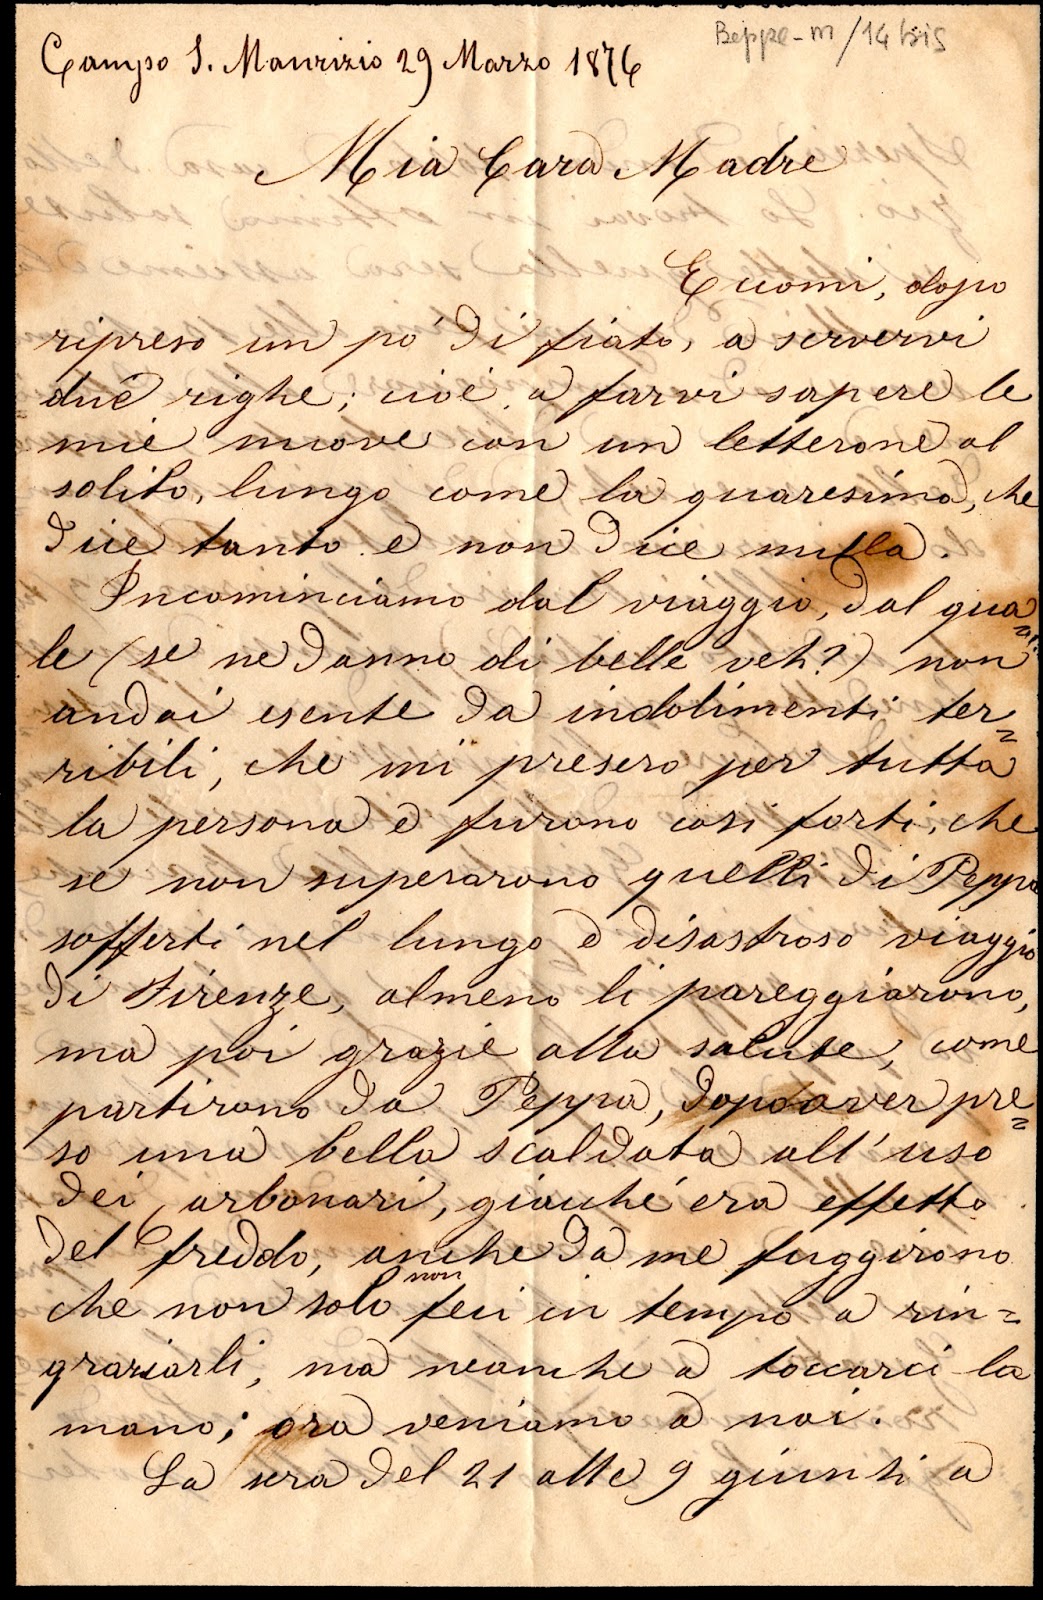 Beppe-m/14 bis
Campo S. Maurizio 29 Marzo 1876
Mia Cara Madre
Eccomi, dopo
ripreso un po' di fiato, a scrvervi
due righe; cioè a farvi sapere le
mie nuove con un letterone al
solito, lungo come la quaresima, che
dice tanto e non dice nulla.
Incominciamo dal viaggio, dal qua=
le (se ne danno di belle veh?) non
andai esente da indolimenti ter=
ribili, che mi presero per tutta
la persona e furono così forti, che
se non superarono quelli di Peppa
sofferti nel lungo e disastroso viaggio
di Firenze, almeno li pareggiarono,
ma poi grazie alla salute, come
partirono da Peppa, dopo aver pre=
so una bella scaldata all'uso
dei Carbonari, giacché era effetto
del freddo, anche da me fuggirono
che non solo non feci in tempo a rin=
graziarli, ma neanche a toccarci la
mano; ora veniamo a noi.
La sera del 21 alle 9 giunti a